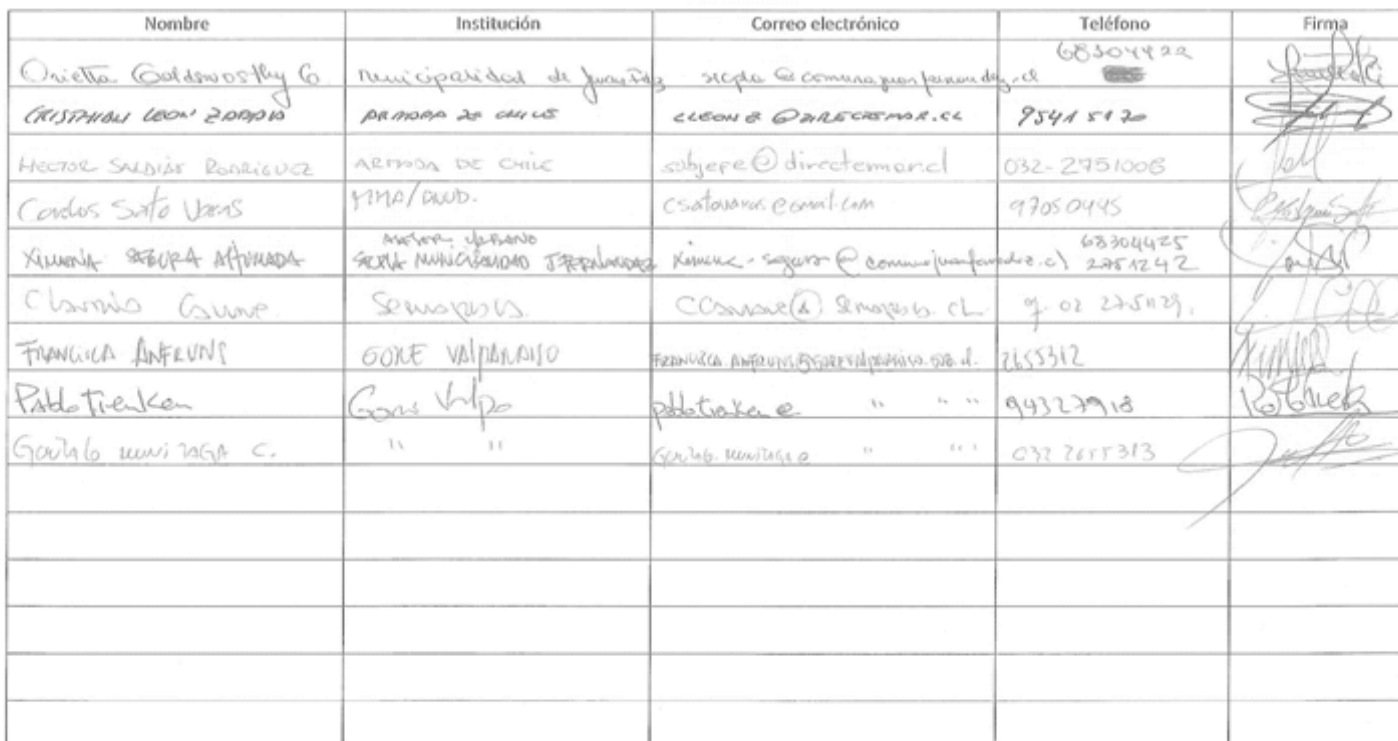 Nombre Institución Correo electrónico Teléfono Firma
68304422
Orietta Goldsworthy G municipalidad de Juan Fdz secpla@comunajuanfernandez.cl
CRISTHIAN LEON ARMADA DE CHILE CLEONB@DIRECTEMAR.CL 95415120
HECTOR SALDIAS RODRIGUEZ ARMADA DE CHILE subjefe@directemar.cl 032-2751008
Carlos Soto Vargas MMA/ csotovargas@gmail.com 97050445
ASESOR URBANO 68304425
XIMENA SEGURA AHUMADA SECPLA MUNICIPALIDAD J.FERNANDEZ ximena.segura@comunajuanfernandez.cl 2751242
Claudio Sernapesca @sernapesca.cl
FRANCISCA ANFRUNS GORE VALPARAISO FRANCISCA.ANFRUNS@GOREVALPARAISO.GOB.CL 2655312
Pablo Trenken Gore Valpo pablo.trenken@ " " " 94327918
Gonzalo MUNIZAGA C. " " Gonzalo.munizaga@ " " " 032 2655313